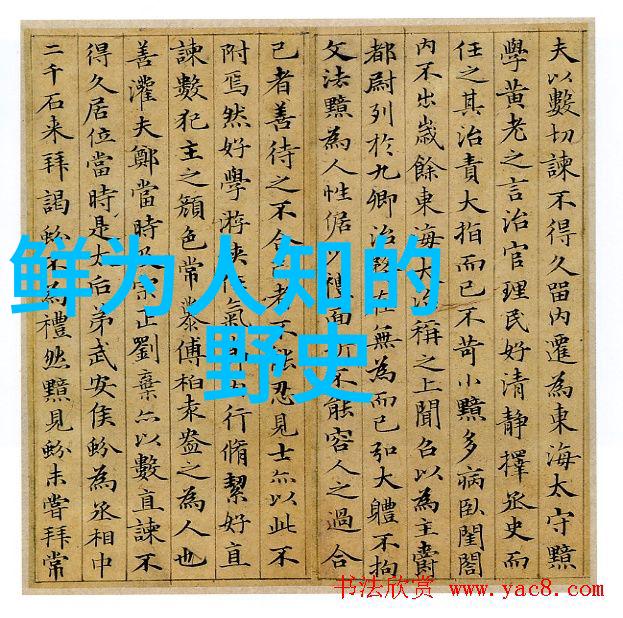 夫以數切諫不得久留內遷為東海太守黯
學黃老之言治官理民好清靜擇丞史而
任之其治責大指而已不苛小黯多病臥閨閤
內不出歲餘東海大治稱之上聞召以為主爵
都尉列於九卿治在無為而已弘大體不拘
文法黯為人性倨禮面不能容人之過合
己者善待之不合者不忍見士亦以此不
附焉然好學游俠氣行脩絜好直
諫數犯主之顏色常慕傅柏袁盎之為人也
善灌夫鄭當時及宗正劉棄亦以數直諫不
得久居位當時是太后弟武安侯蚡為丞相中
二千石来拜謁蚡為禮然黯見蚡未嘗拜常
鲜为人知的
野史
书法欣赏 www.yac8.com